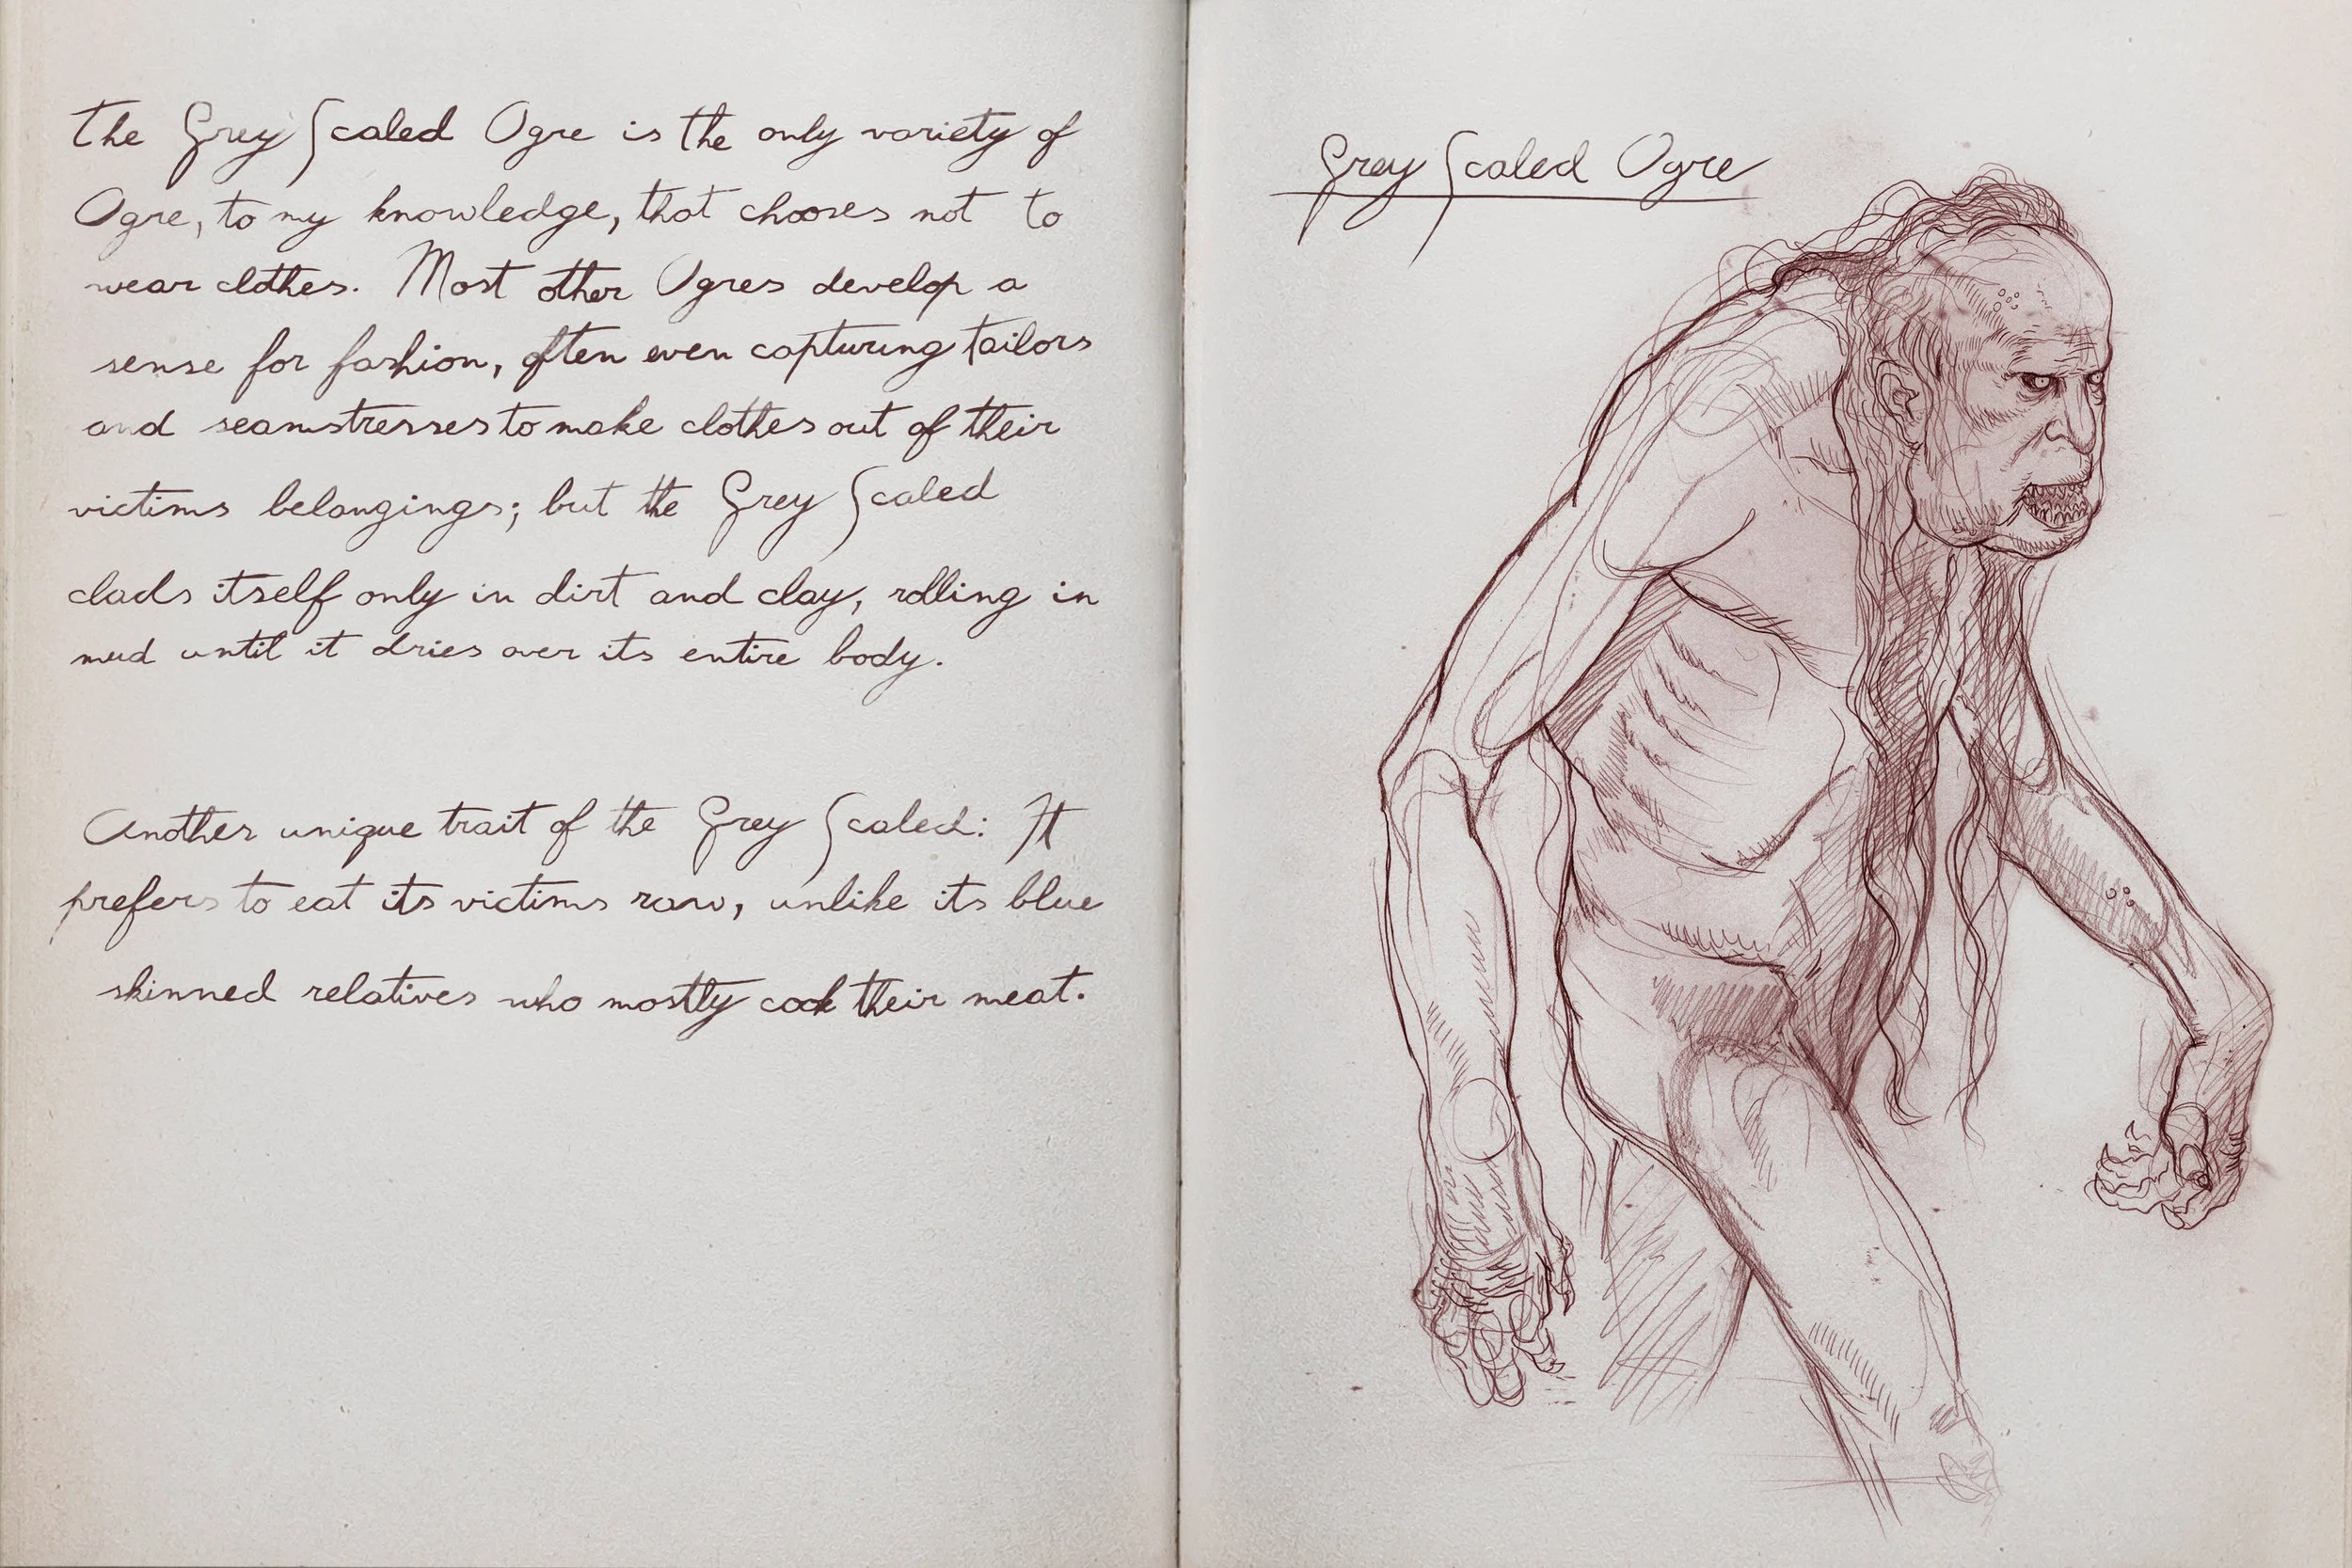 The Grey Scaled Ogre is the only variety of
Ogre, to my knowledge, that chooses not to
wear clothes. Most other Ogres develop a
sense for fashion, often even capturing tailors
and seamstresses to make clothes out of their
victims belongings; but the Grey Scaled
clads itself only in dirt and clay, rolling in
mud until it dries over its entire body.
Another unique trait of the Grey Scaled: It
prefers to eat its victims raw, unlike its blue
skinned relatives who mostly cook their meat.
Grey Scaled Ogre